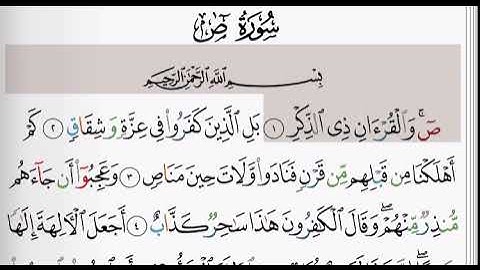 سُورَةُ صٓ
بِسْمِ ٱللَّهِ ٱلرَّحْمَٰنِ ٱلرَّحِيمِ
صٓۚ وَٱلْقُرْءَانِ ذِى ٱلذِّكْرِ ١ بَلِ ٱلَّذِينَ كَفَرُوا۟ فِى عِزَّةٍ وَشِقَاقٍ ٢ كَمْ
أَهْلَكْنَا مِن قَبْلِهِم مِّن قَرْنٍ فَنَادَوا۟ وَّلَاتَ حِينَ مَنَاصٍ ٣ وَعَجِبُوٓا۟ أَن جَآءَهُم
مُّنذِرٌ مِّنْهُمْ ۖ وَقَالَ ٱلْكَٰفِرُونَ هَٰذَا سَٰحِرٌ كَذَّابٌ ٤ أَجَعَلَ ٱلْءَالِهَةَ إِلَٰهًا